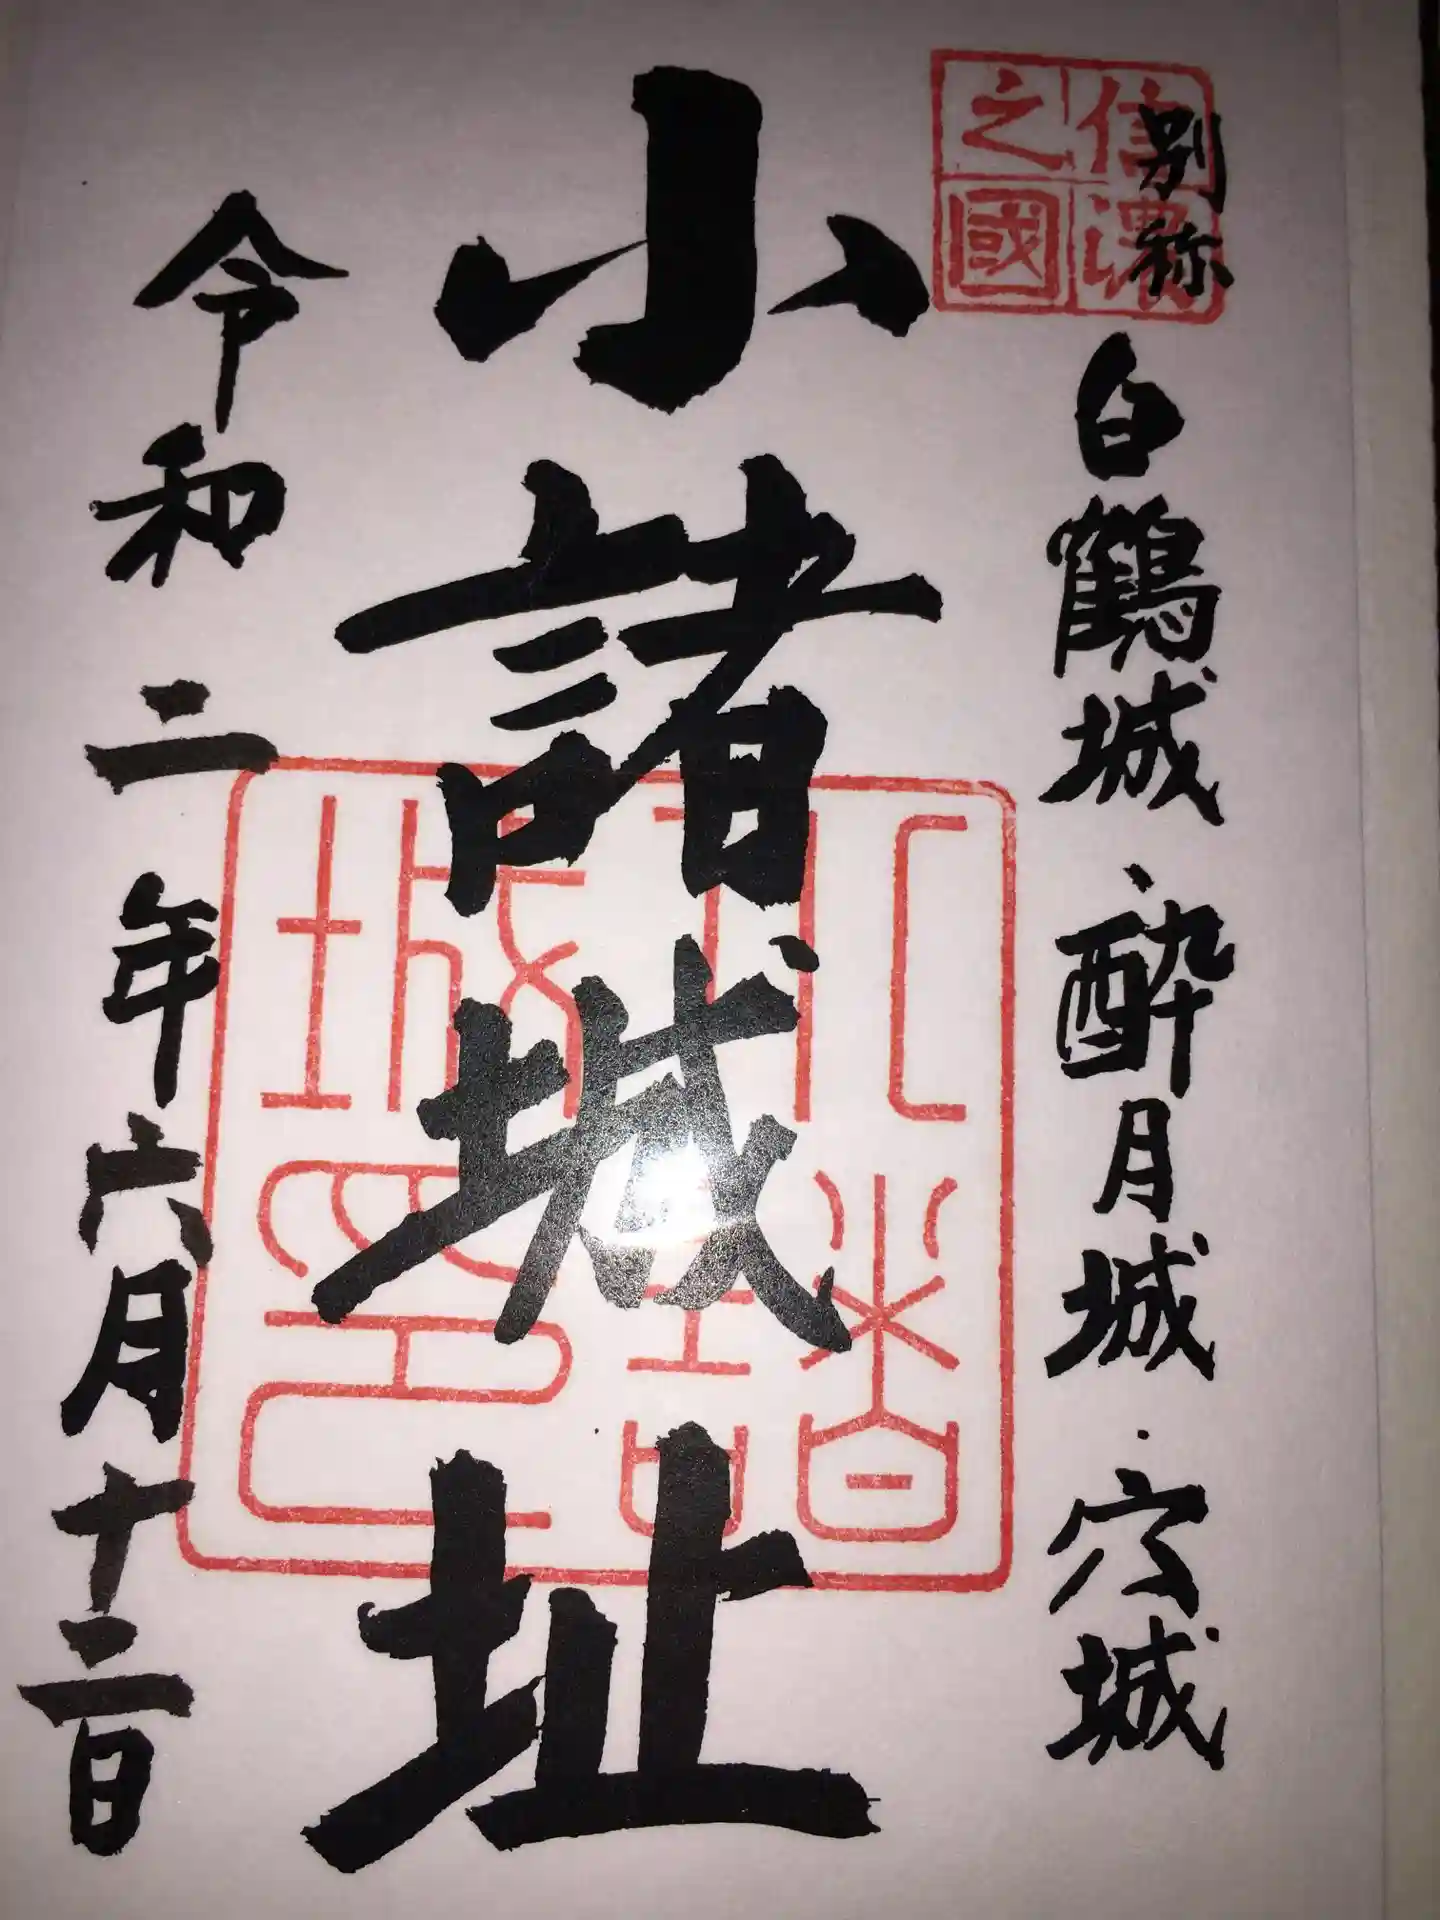 信濃之國
別称 白鶴城・酔月城・穴城
小諸城址
小諸城印
令和二年六月十二日